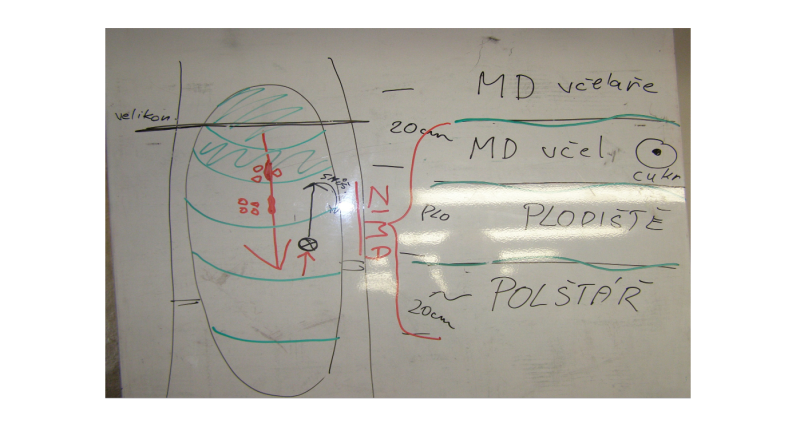 MD včelaře
velikon.
20cm
MD včel,
cukr
ZIMA
PLO
PLODIŠTĚ
POLŠTÁŘ
20cm